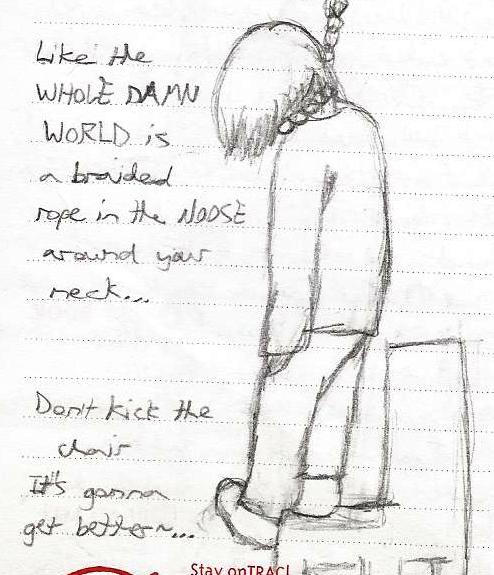 Like the
WHOLE DAMN
WORLD is
a braided
rope in the NOOSE
around your
neck...
Don't kick the
chair
It's gonna
get better~...
Stay onTRAC!